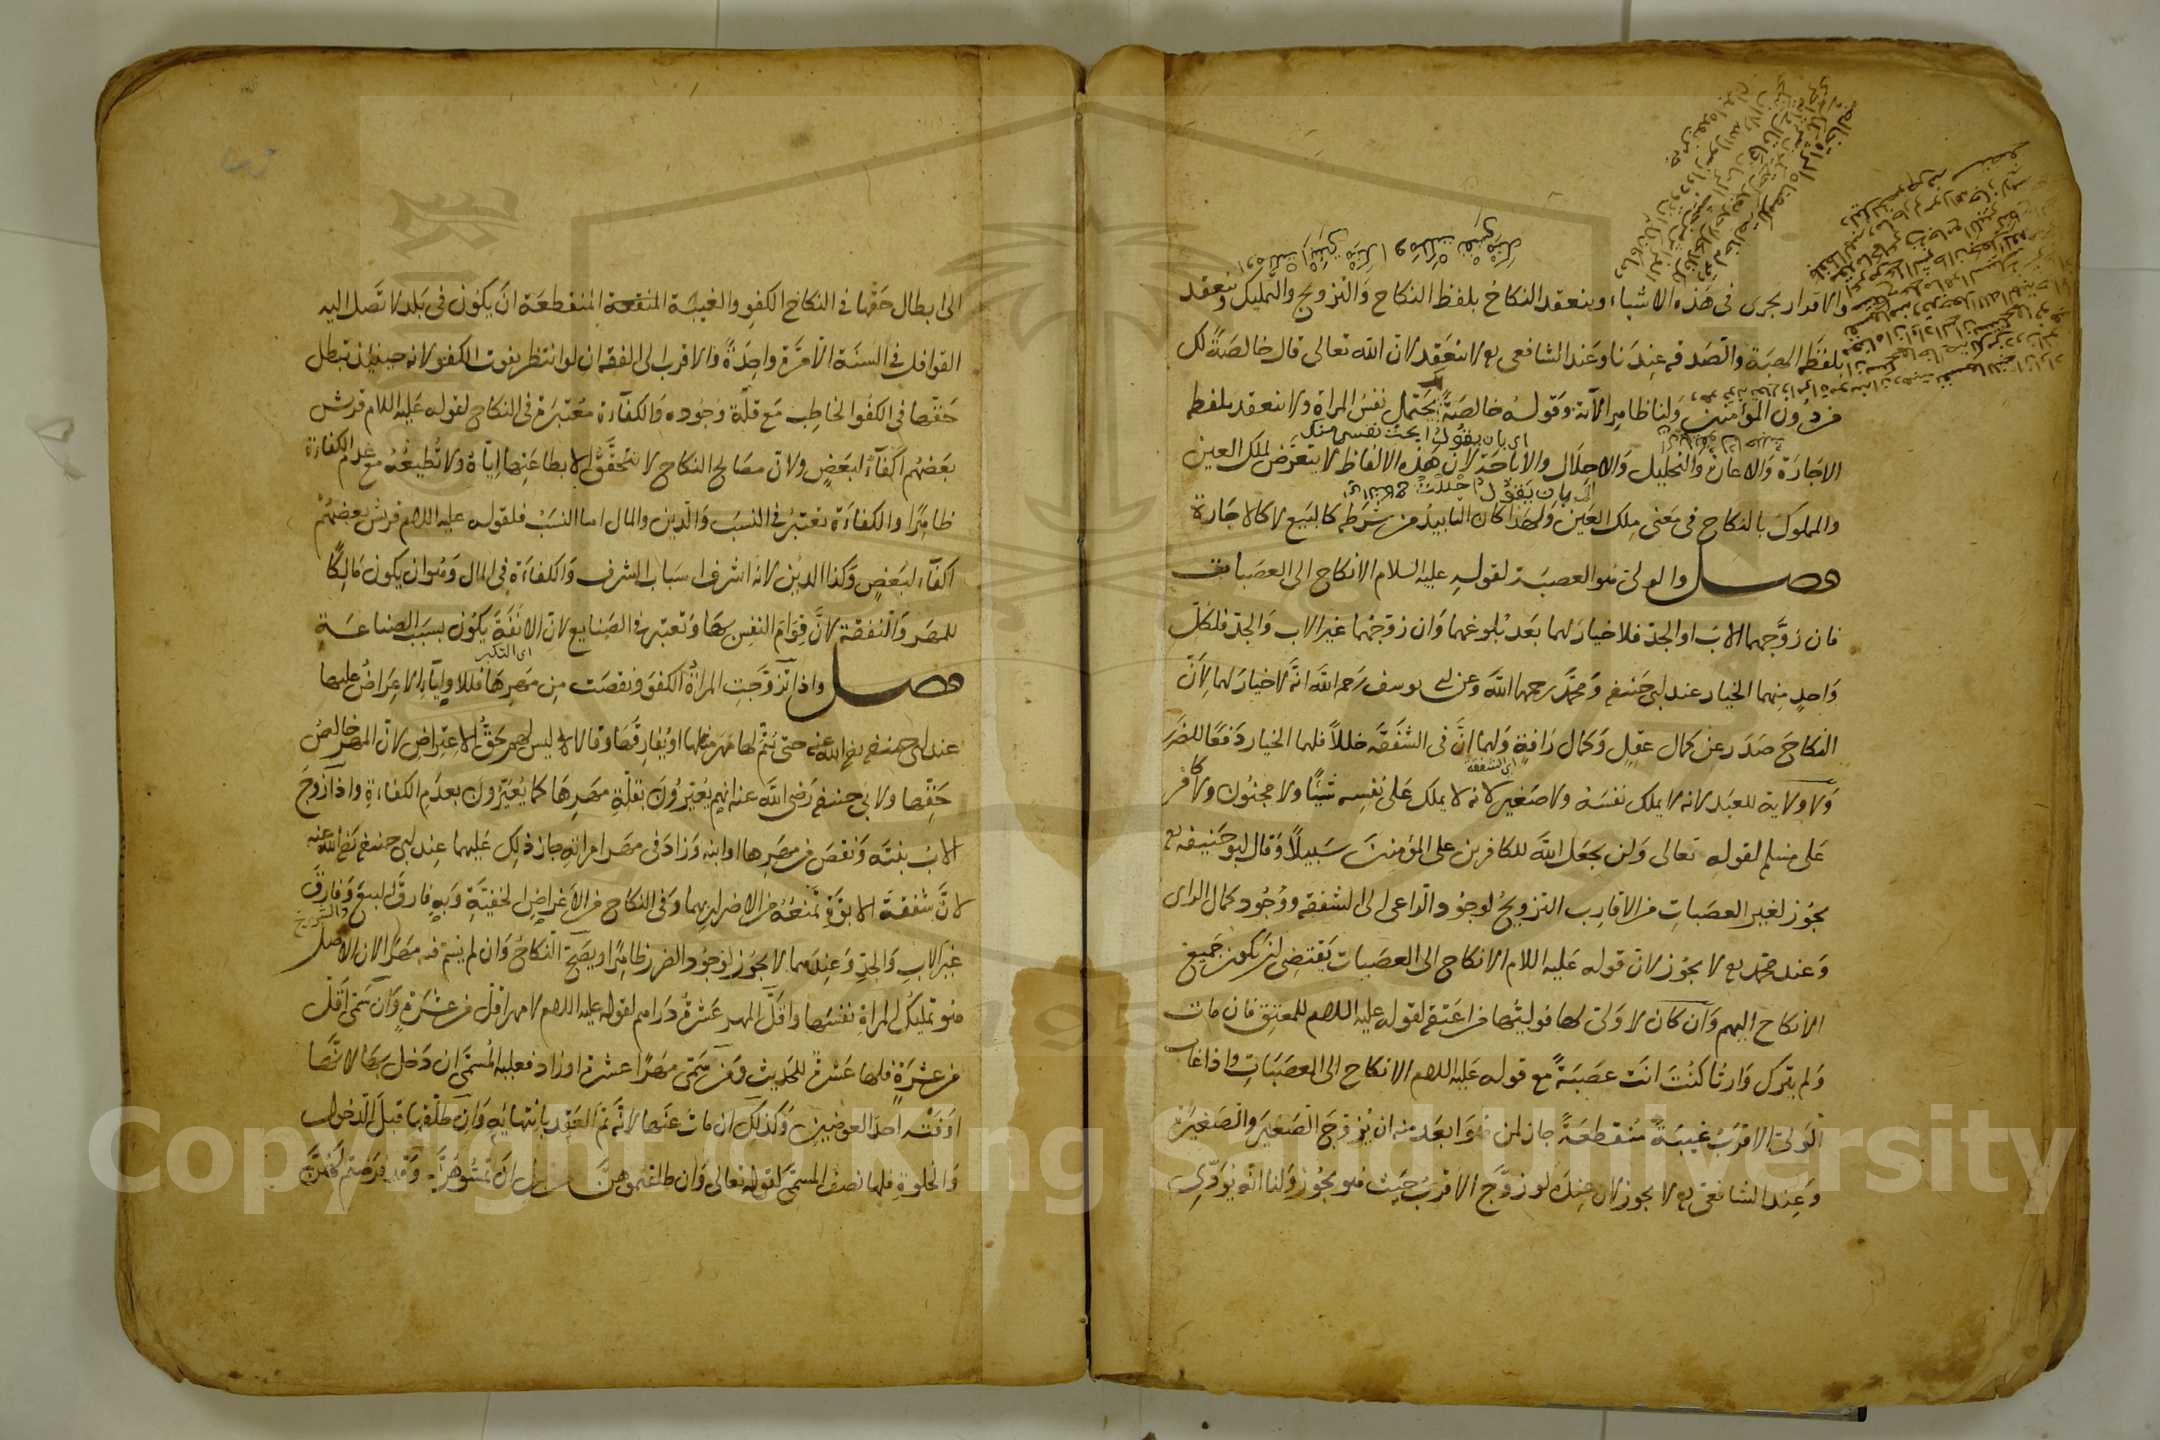 والاقرار يجرى فى هذه الاشياء وينعقد النكاح بلفظ النكاح والتزويج والتمليك وينعقد
بلفظ الهبة والصدقه عندنا وعند الشافعى رع لا ينعقد لان الله تعالى قال خالصة لك
من دون المؤمنين ولنا ظاهر الآية وقوله خالصة يحتمل نفس المراة ولا ينعقد بلفظ
اى بان يقول ابحت نفسى منك
الاجارة والاعارة والتحليل والاحلال والاباحة لان هذه الالفاظ لا يتعرض لملك العين
اى بان يقول احللت
والمملوك بالنكاح فى معنى ملك العين ولهذا كان التابيد من شرطه كالبيع لا كالاجارة
فصل والولى هو العصبة لقوله عليه السلام الانكاح الى العصبات
فان زوجهما الاب او الجد فلا خيار لهما بعد بلوغهما وان زوجهما غير الاب والجد فلكل
واحد منهما الخيار عند ابى حنيفه ومحمد رحمهما الله وعن ابى يوسف رحمه الله انه لا خيار لهما لان
النكاح صدر عن كمال عقل وكمال رافة ولهما ان فى الشفقه خللا فلهما الخيار دفعا للضرر
اى الشفقة
ولا ولاية للعبد لانه لا يملك نفسه ولا صغير لانه لا يملك على نفسه شيئا ولا مجنون ولا كافر
على مسلم لقوله تعالى ولن يجعل الله للكافرين على المؤمنين سبيلا وقال ابو حنيفه رع
يجوز لغير العصبات من الاقارب التزويج لوجود الداعى الى الشفقه ووجود كمال الراى
وعند محمد رع لا يجوز لان قوله عليه السلام الانكاح الى العصبات يقتضى ان يكون جميع
الانكاح اليهم وان كان لا ولى لها فوليها من اعتقه لقوله عليه السلام للمعتق فان مات
ولم يترك وارثا كنت انت عصبة مع قوله عليه السلام الانكاح الى العصبات واذا غاب
الولى الاقرب غيبة منقطعة جاز لمن هو ابعد منه ان يزوج الصغير والصغيرة
وعند الشافعى رع لا يجوز لان عنده لو زوج الاقرب حيث هو يجوز ولنا انه يؤدى
الى ابطال حقها فى النكاح الكفو والغيبة المنقطعة المنقطعة ان يكون فى بلد لا تصل اليه
القوافل فى السنة الا مرة واحدة والاقرب الى الفقه ان لو انتظر يفوت الكفو لانه حينئذ تبطل
حقها فى الكفو الخاطب مع قلة وجوده والكفاءة معتبرة فى النكاح لقوله عليه السلام قريش
بعضهم اكفاء لبعض ولان مصالح النكاح لا تتحقق الا بطاعتها اياه ولا تطيعه مع عدم الكفاءة
ظاهرا والكفاءة تعتبر فى النسب والدين والمال اما النسب فلقوله عليه السلام قريش بعضهم
اكفاء لبعض وكذا الدين لانه اشرف اسباب الشرف والكفاءة فى المال وهو ان يكون مالكا
للمهر والنفقة لان قوام النفس بها وتعتبر فى الصنايع لان الانفة يكون بسبب الصناعة
اى التكبر
فصل واذا تزوجت المراة الكفو ونقصت من مهرها فللاولياء الاعتراض عليها
عند ابى حنيفه رضى الله عنه حتى يتم لها مهر مثلها او يفارقها وقالا لا ليس لهم حق الاعتراض لان المهر خالص
حقها ولابى حنيفه رضى الله عنه انهم يعيرون بقلة مهرها كما يعيرون بعدم الكفاءة واذا زوج
الاب بنته ونقص من مهرها او ابنه وزاد فى مهر امراته جاز ذلك عليهما عند ابى حنيفه رضى الله عنه
لان شفقة الابوة تمنعه من الاضرار بهما وفى النكاح من الاغراض الخفية وبه فارق البيع وفارق
غير الاب والجد وعندهما لا يجوز لوجود الضرر ظاهرا ويصح النكاح وان لم يسم فيه مهرا لان الاصل
هو تمليك المراة نفسها واقل المهر عشرة دراهم لقوله عليه السلام لا مهر اقل من عشرة وان سمى اقل
من عشرة فلها عشرة للحديث ومن سمى مهرا عشرة او زاد فعليه المسمى ان دخل بها لانها
اوفت احد العوضين وكذلك ان مات عنها لانه تم العقد بانتهائه وان طلقها قبل الدخول
والخلوة فلها نصف المسمى لقوله تعالى وان طلقتموهن من قبل ان تمسوهن وقد فرضتم لهن
Copyright © King Saud University